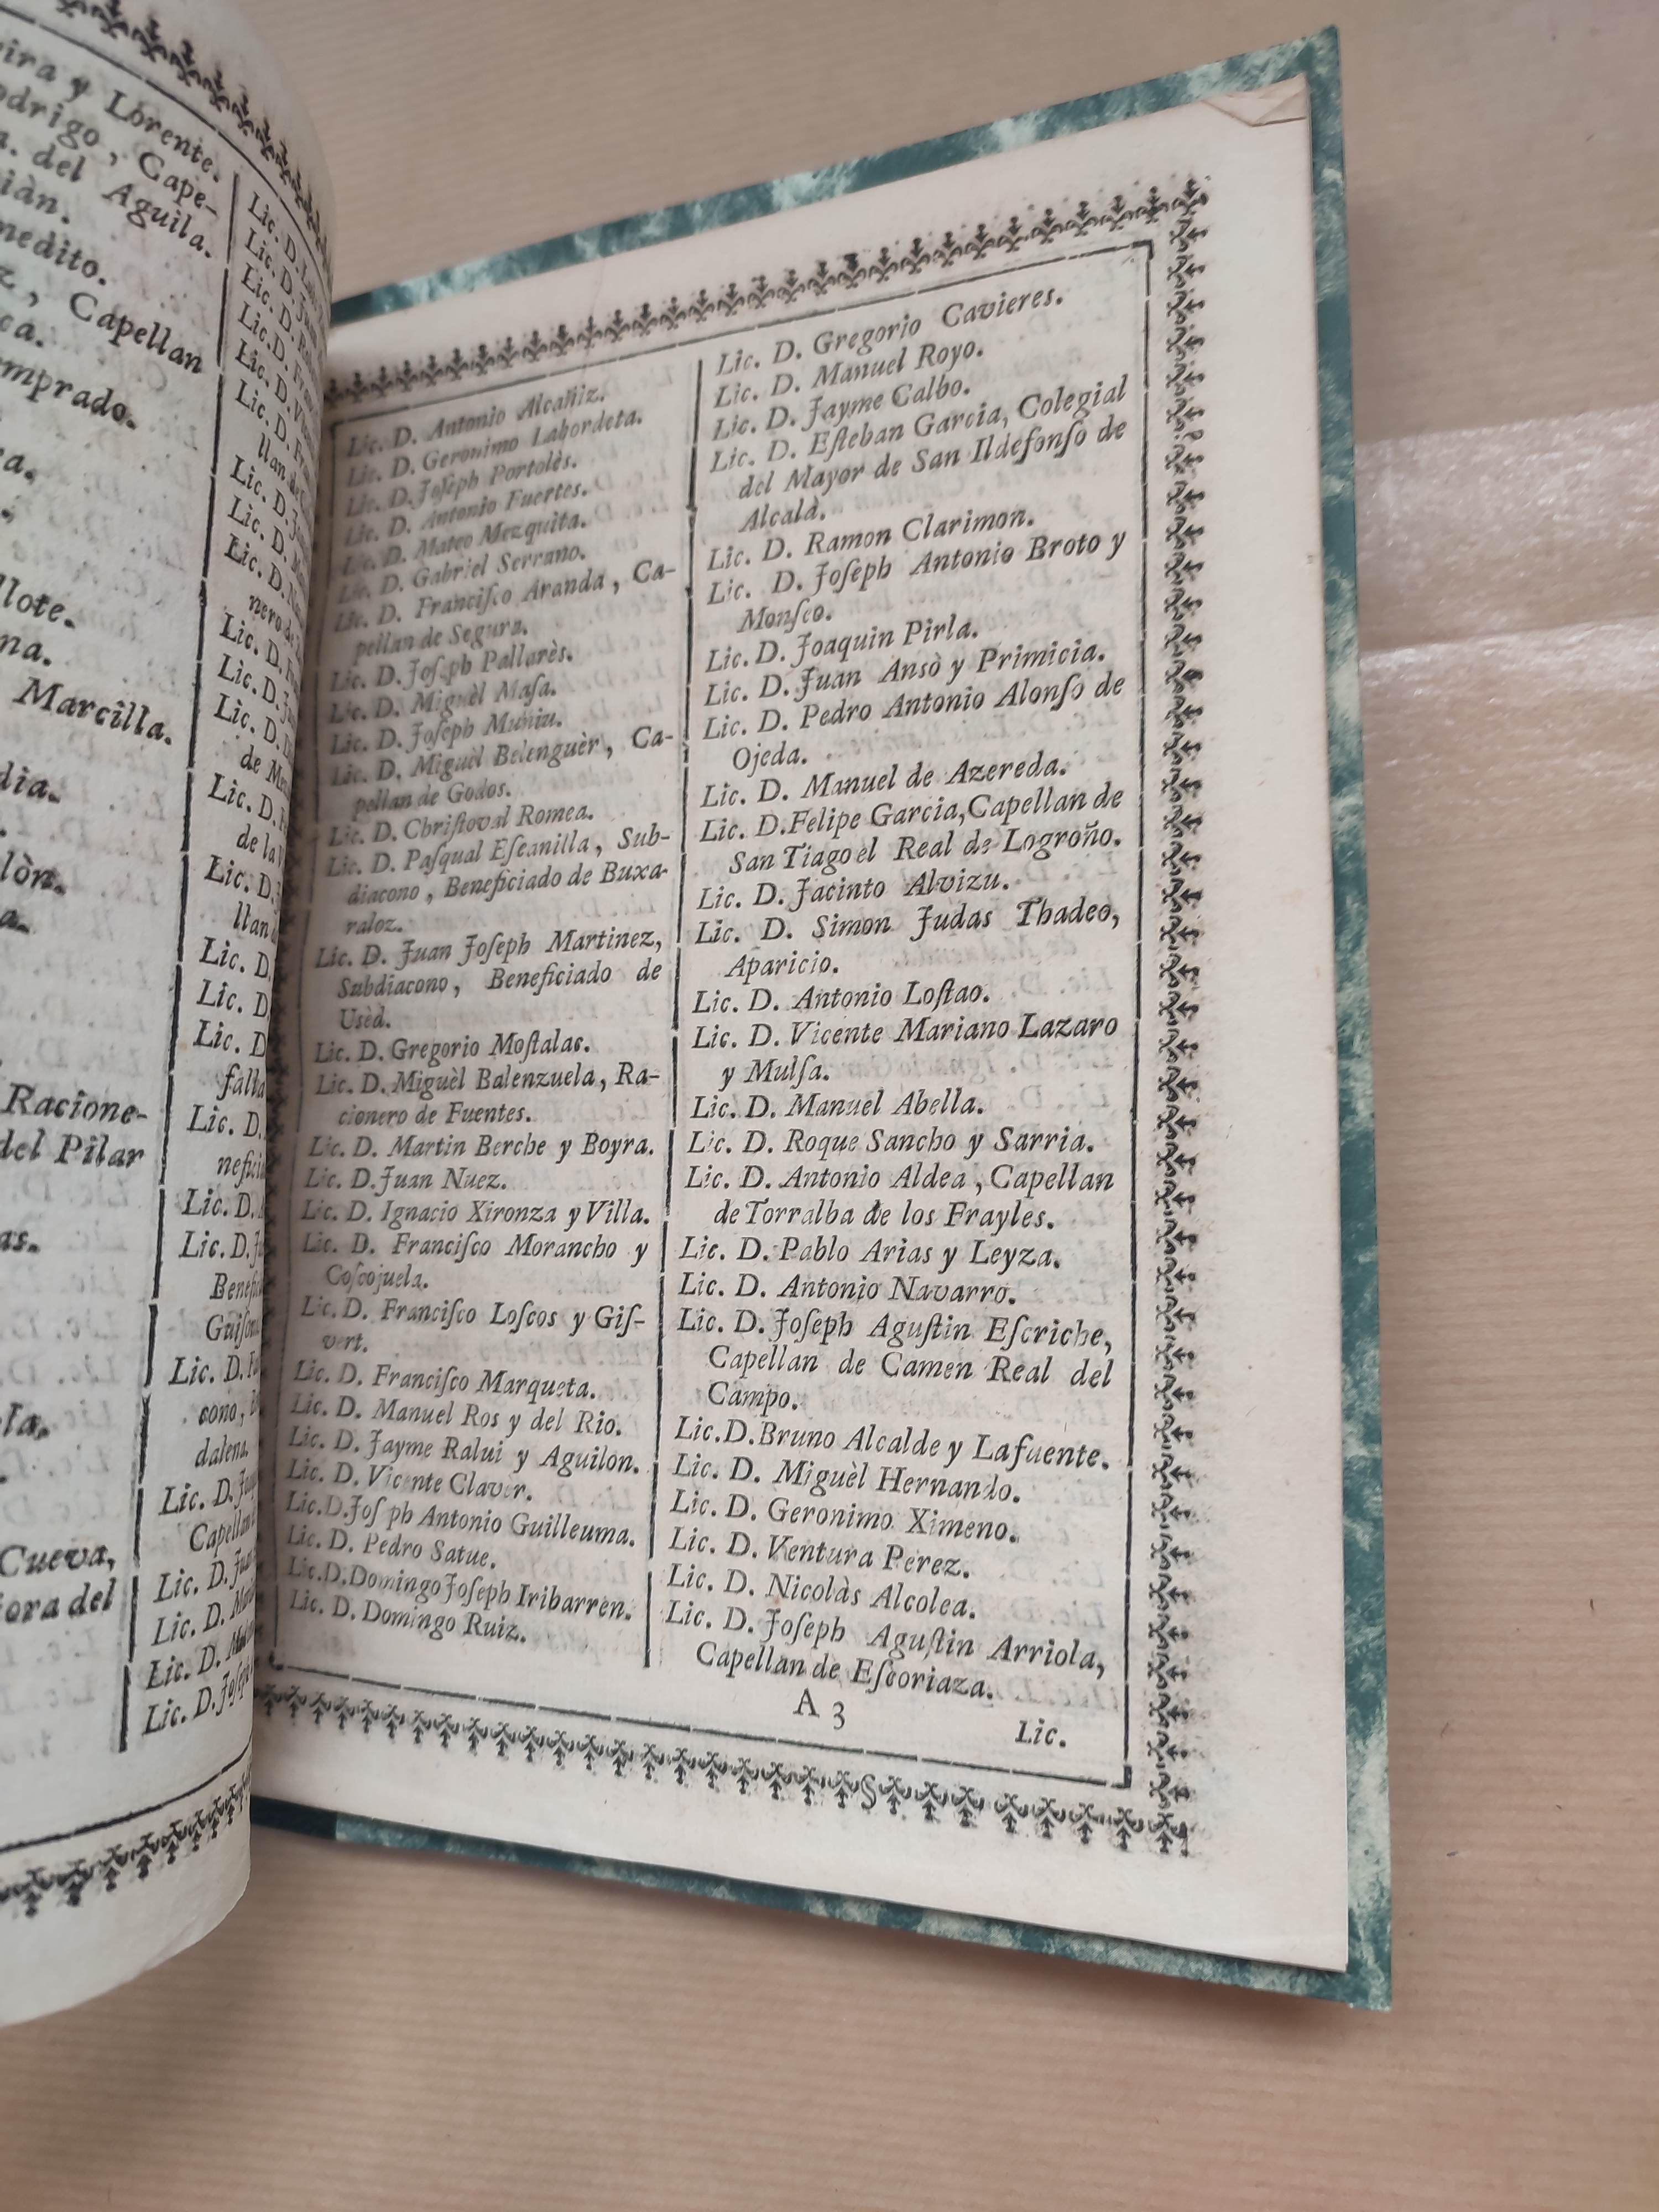 ira y Lorente.
odrigo, Cape-
a. del Aguila.
iàn.
nedito.
z, Capellan
ca.
mprado.
a.
llote.
na.
Marcilla.
dia.
lòn.
a.
Racione-
del Pilar
as.
la.
Cueva,
ora del
Lic. D.
Lic. D.
Lic. D.
Lic. D.
Lic. D.
Lic. D.
llan
Lic. D.
Lic. D.
Lic. D.
nero de
Lic. D.
Lic. D.
Lic. D.
de
Lic. D.
de la
Lic. D.
llan
Lic. D.
Lic. D.
Lic. D.
falla
Lic. D.
nefici
Lic. D.
Lic. D.
Benefi
Lic. D.
cono,
dalena.
Lic. D.
Capellan
Lic. D.
Lic. D.
Lic. D.
Lic. D. Joſeph
Lic. D. Antonio Alcañiz.
Lic. D. Geronimo Labordeta.
Lic. D. Joſeph Portolès.
Lic. D. Antonio Fuertes.
Lic. D. Mateo Mezquita.
Lic. D. Gabriel Serrano.
Lic. D. Franciſco Aranda, Ca-
pellan de Segura.
Lic. D. Joſeph Pallarès.
Lic. D. Miguèl Maſa.
Lic. D. Joſeph Muniu.
Lic. D. Miguèl Belenguèr, Ca-
pellan de Godos.
Lic. D. Chriſtoval Romea.
Lic. D. Paſqual Eſcanilla, Sub-
diacono, Beneficiado de Buxa-
raloz.
Lic. D. Juan Joſeph Martinez,
Subdiacono, Beneficiado de
Usèd.
Lic. D. Gregorio Moſtalac.
Lic. D. Miguèl Balenzuela, Ra-
cionero de Fuentes.
Lic. D. Martin Berche y Boyra.
Lic. D. Juan Nuez.
Lic. D. Ignacio Xironza y Villa.
Lic. D. Franciſco Morancho y
Coſcojuela.
Lic. D. Franciſco Loſcos y Giſ-
vert.
Lic. D. Franciſco Marqueta.
Lic. D. Manuel Ros y del Rio.
Lic. D. Jayme Ralui y Aguilon.
Lic. D. Vicente Claver.
Lic. D. Joſ ph Antonio Guilleuma.
Lic. D. Pedro Satue.
Lic. D. Domingo Joſeph Iribarren.
Lic. D. Domingo Ruiz.
Lic. D. Gregorio Cavieres.
Lic. D. Manuel Royo.
Lic. D. Jayme Calbo.
Lic. D. Eſteban Garcia, Colegial
del Mayor de San Ildefonſo de
Alcalà.
Lic. D. Ramon Clarimon.
Lic. D. Joſeph Antonio Broto y
Monſeo.
Lic. D. Joaquin Pirla.
Lic. D. Juan Ansò y Primicia.
Lic. D. Pedro Antonio Alonſo de
Ojeda.
Lic. D. Manuel de Azereda.
Lic. D. Felipe Garcia, Capellan de
San Tiago el Real de Logroño.
Lic. D. Jacinto Alvizu.
Lic. D. Simon Judas Thadeo,
Aparicio.
Lic. D. Antonio Loſtao.
Lic. D. Vicente Mariano Lazaro
y Mulſa.
Lic. D. Manuel Abella.
Lic. D. Roque Sancho y Sarria.
Lic. D. Antonio Aldea, Capellan
de Torralba de los Frayles.
Lic. D. Pablo Arias y Leyza.
Lic. D. Antonio Navarro.
Lic. D. Joſeph Aguſtin Eſcriche,
Capellan de Camen Real del
Campo.
Lic. D. Bruno Alcalde y Lafuente.
Lic. D. Miguèl Hernando.
Lic. D. Geronimo Ximeno.
Lic. D. Ventura Perez.
Lic. D. Nicolàs Alcolea.
Lic. D. Joſeph Aguſtin Arriola,
Capellan de Eſcoriaza.
A 3
Lic.